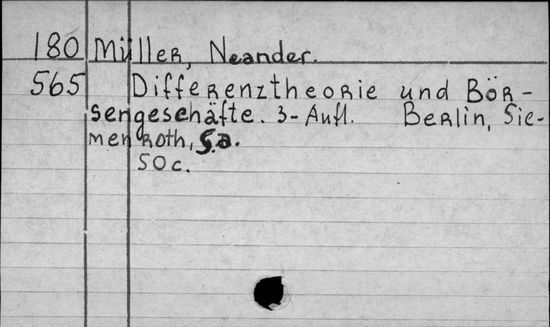 180 Müller, Neander.
565 Differenztheorie und Bör-
sengeschäfte. 3-Aufl. Berlin, Sie-
menroth, s.a.
soc.